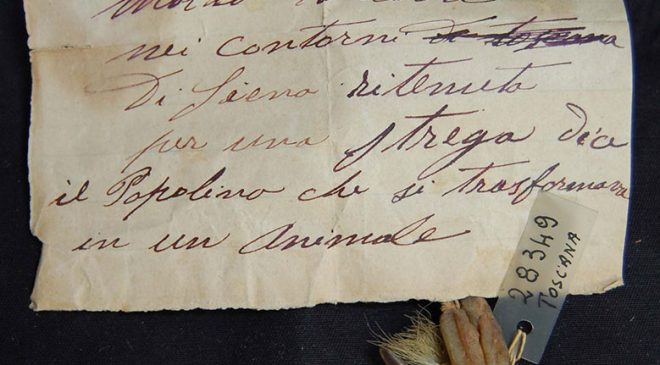 nei contorni di toscana
Di Siena ritenuta
per una strega dice
il Popolino che si trasformava
in un animale
28349
TOSCANA